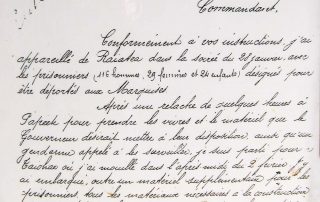 Commandant,
Conformément à vos instructions, j'ai
appareillé de Raiatea dans la soirée du 28 janvier avec
les prisonniers (116 hommes, 29 femmes et 24 enfants) désignés pour
être déportés aux Marquises
Après une relache de quelques heures à
Papeete pour prendre les vivres et le matériel que le
Gouverneur désirait mettre à leur disposition, ainsi qu'un
gendarme appelé à les surveiller, je suis parti pour
Taiohae où j'ai mouillé dans l'après midi du 2 février. J'y
ai embarqué, outre un matériel supplémentaire pour les
prisonniers, tous les matériaux nécessaires à la construction